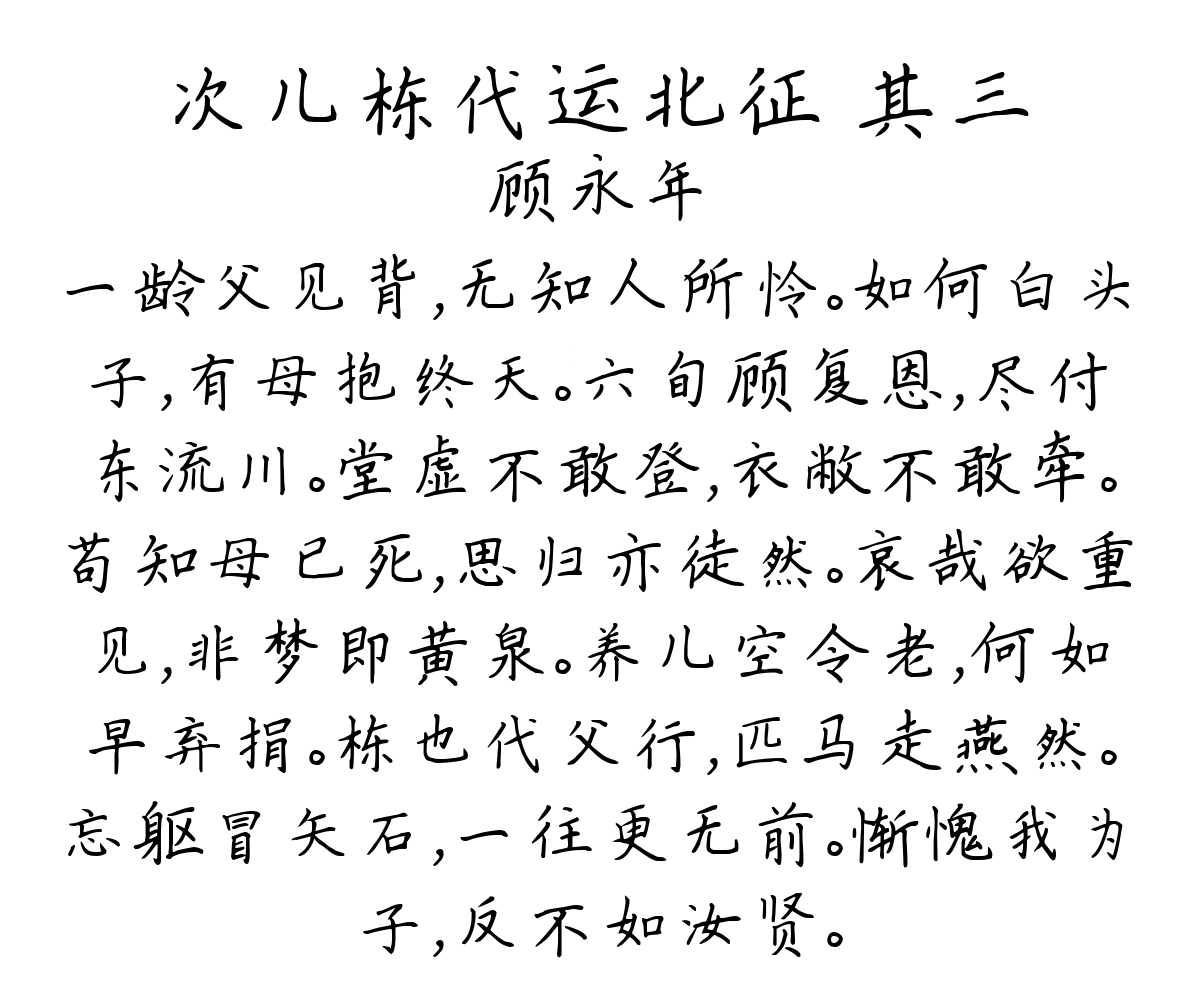 次儿栋代运北征 其三
顾永年
一龄父见背,无知人所怜。如何白头
子,有母抱终天。六旬顾复恩,尽付
东流川。堂虚不敢登,衣敝不敢牵。
苟知母已死,思归亦徒然。哀哉欲重
见,非梦即黄泉。养儿空令老,何如
早弃捐。栋也代父行,匹马走燕然。
忘躯冒矢石,一往更无前。惭愧我为
子,反不如汝贤。